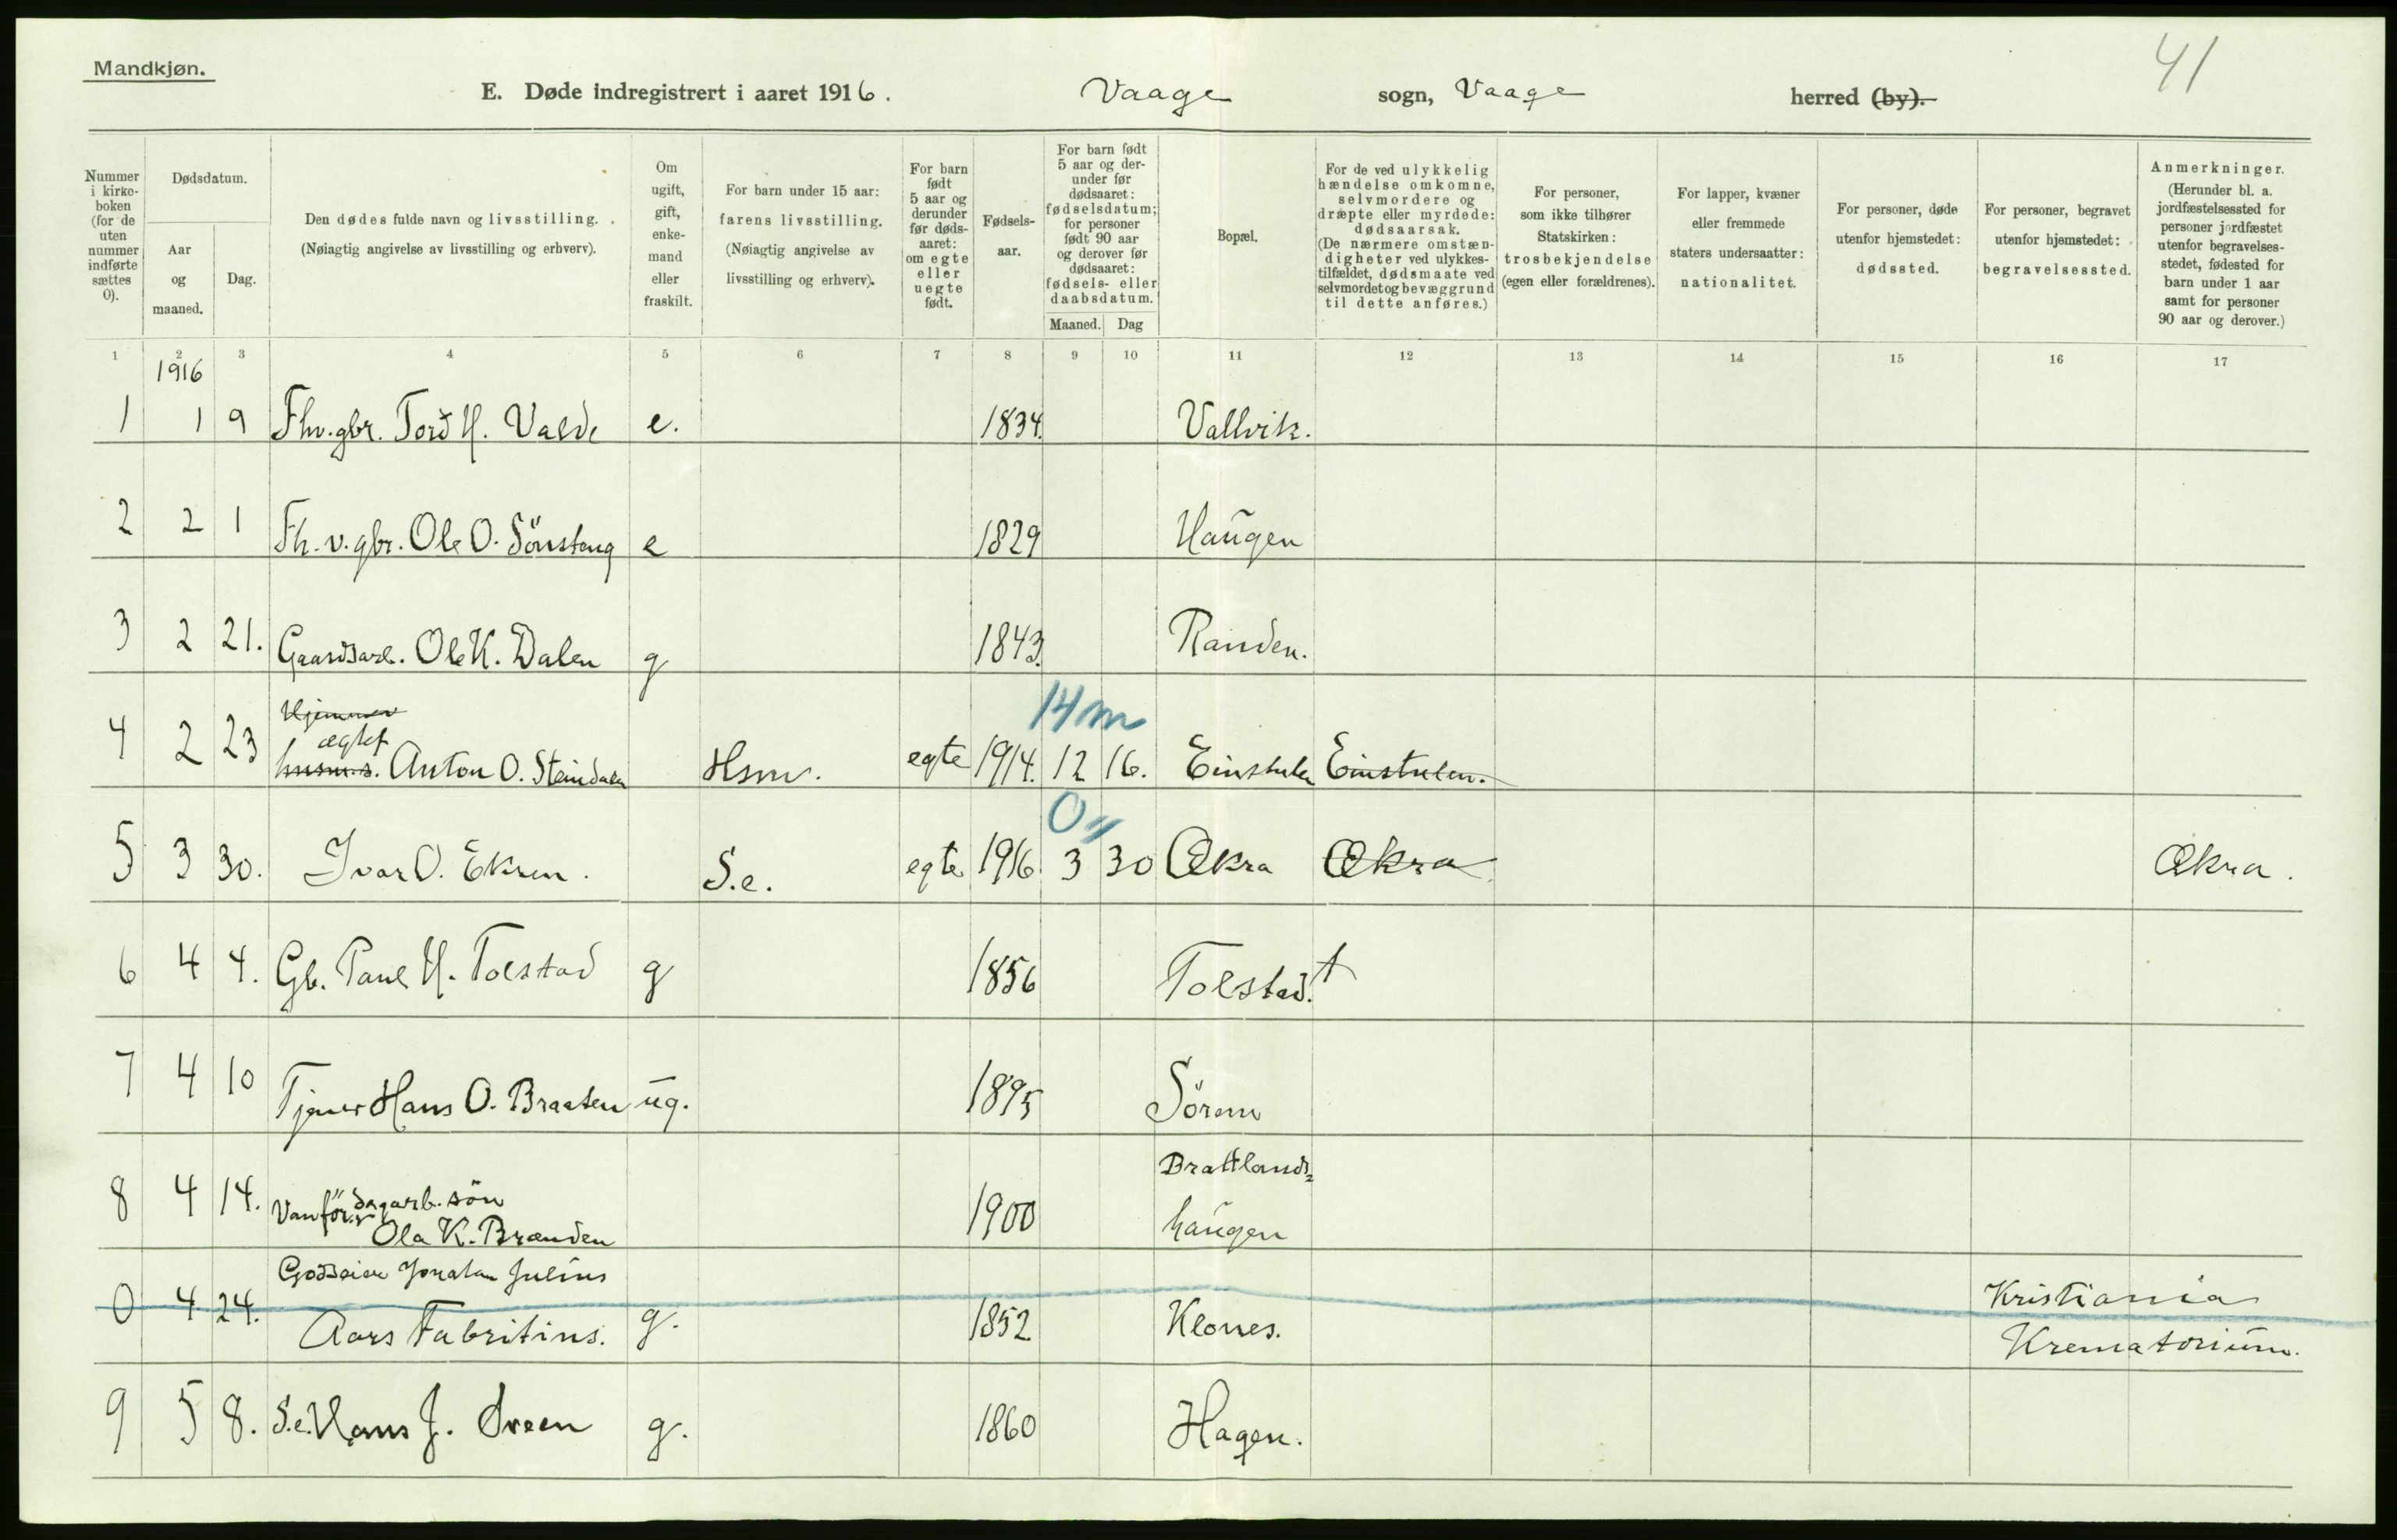 Mandkjøn.
41
E. Døde indregistrert i aaret 1916. Vaage sogn, Vaage herred (by).
Nummer i kirkeboken (for de uten nummer indførte sættes 0).
Dødsdatum.
Aar og maaned.
Dag.
Den dødes fulde navn og livsstilling.
(Nøiagtig angivelse av livsstilling og erhverv).
Om ugift, gift, enkemand eller fraskilt.
For barn under 15 aar: farens livsstilling. (Nøiagtig angivelse av livsstilling og erhverv).
For barn født 5 aar og derunder før dødsaaret: om egte eller uegte født.
Fødselsaar.
For barn født 5 aar og derunder før dødsaaret: fødselsdatum; for personer født 90 aar og derover før dødsaaret: fødsels- eller daabsdatum.
Maaned. Dag
Bopæl.
For de ved ulykkelig hændelse omkomne, selvmordere og dræpte eller myrdede: dødsaarsak. (De nærmere omstændigheter ved ulykkestilfældet, dødsmaate ved selvmordet og bevæggrund til dette anføres.)
For personer, som ikke tilhører Statskirken: trosbekjendelse (egen eller forældrenes).
For lapper, kvæner eller fremmede staters undersaatter: nationalitet.
For personer, døde utenfor hjemstedet: dødssted.
For personer, begravet utenfor hjemstedet: begravelsessted.
Anmerkninger. (Herunder bl. a. jordfæstelsessted for personer jordfæstet utenfor begravelsesstedet, fødested for barn under 1 aar samt for personer 90 aar og derover.)
1 2 3 4 5 6 7 8 9 10 11 12 13 14 15 16 17
1916
1 1 9 Fhv. gbr. Tord H. Valde e. 1834. Vallvik.
2 2 1 Fh. v. gbr. Ole O. Sönsteng e 1829 Haugen
3 2 21. Gaardarb. Ole K. Dalen g 1843. Randen.
14 m
4 2 23 ægtef husm.s. Anton O. Steindalen Hsm. egte 1914. 12 16. Einstulen Einstulen.
0 "
5 3 30. Ivar O. Ekren. S.e. egte 1916. 3 30 Ækra Ækra Ækra.
6 4 4. Gb. Paul H. Tolstad g 1856 Tolstad. +
7 4 10 Tjener Hans O. Braaten ug. 1895 Sörem
8 4 14. Vanför dagarb. sön 1900 Brattlands=
Ola K. Brænden haugen
0 4 24. Godseier Jonatan Julius Kristiania
Aars Fabritius. g. 1852 Klones. Krematorium.
9 5 8. S.e. Hans J. Sveen g. 1860 Hagen.